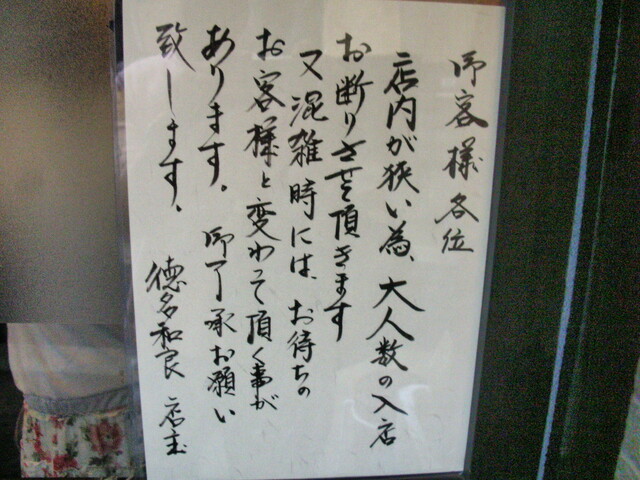 御客様各位
店内が狭い為、大人数の入店
お断りさせて頂きます
又混雑時には、お待ちの
お客様と変わって頂く事が
あります。御了承お願い
致します、
徳多和良 店主